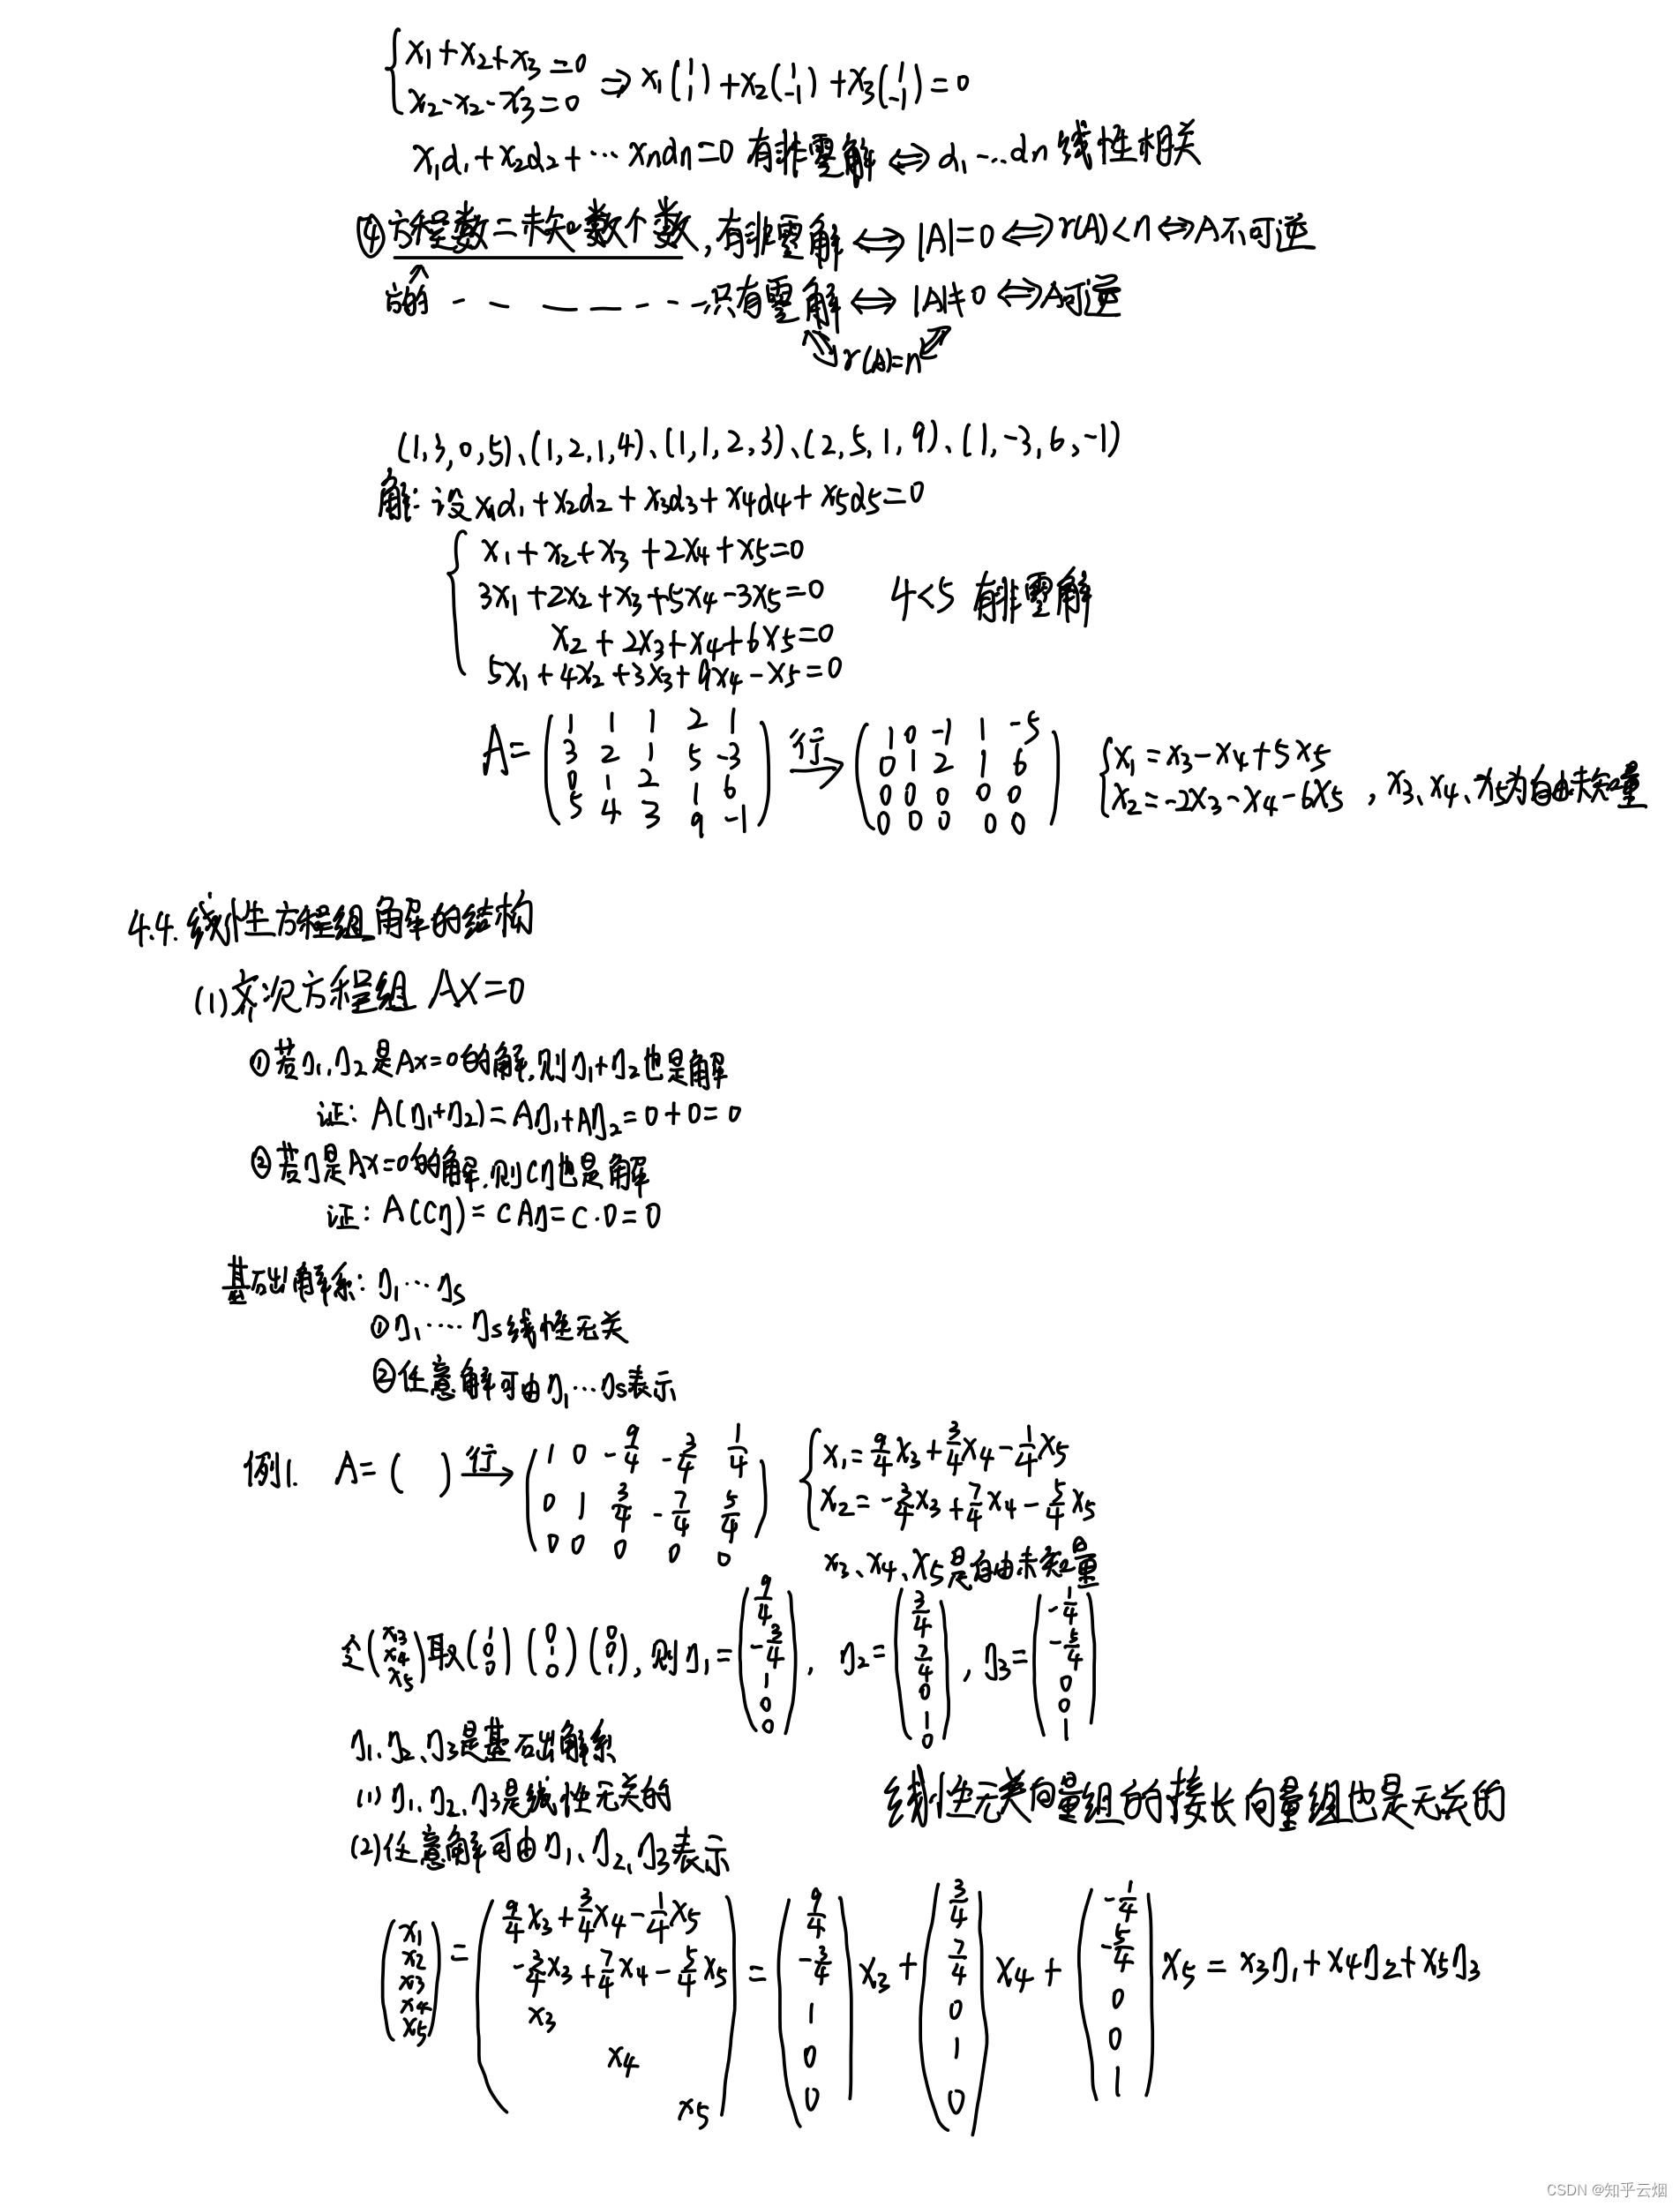 { x₁+x₂+x₃=0
x₂-x₂-x₃=0 ⇒ x₁(1 1)+x₂(1 -1)+x₃(1 -1)=0
x₁α₁+x₂α₂+⋯xnαn=0 有非零解 ⇔ α₁⋯αn 线性相关
④方程数=未知数个数,有非零解 ⇔ |A|=0 ⇔ r(A)<n ⇔ A不可逆
方的 - - - - - - - 只有零解 ⇔ |A|≠0 ⇔ A可逆
r(A)=n
(1,3,0,5)、(1,2,1,4)、(1,1,2,3)、(2,5,1,9)、(1,-3,6,-1)
解:设x₁α₁+x₂α₂+x₃α₃+x₄α₄+x₅α₅=0
x₁+x₂+x₃+2x₄+x₅=0
3x₁+2x₂+x₃+5x₄-3x₅=0 4<5 有非零解
x₂+2x₃+x₄+6x₅=0
5x₁+4x₂+3x₃+9x₄-x₅=0
A= ( 1 1 1 2 1 ) 行→ ( 1 0 -1 1 -5 )
( 3 2 1 5 -3 ) ( 0 1 2 1 6 ) { x₁=x₃-x₄+5x₅
( 0 1 2 1 6 ) ( 0 0 0 0 0 ) x₂=-2x₃-x₄-6x₅ ,x₃、x₄、x₅为自由未知量
( 5 4 3 9 -1 ) ( 0 0 0 0 0 )
4.4.线性方程组解的结构
(1)齐次方程组 AX=0
①若η₁,η₂是Ax=0的解,则η₁+η₂也是解
证:A(η₁+η₂)=Aη₁+Aη₂=0+0=0
②若η是Ax=0的解,则cη也是解
证:A(Cη)=cAη=c·0=0
基础解系:η₁⋯ηs
①η₁⋯⋯ηs线性无关
②任意解可由η₁⋯ηs表示
例1. A=( ) 行→ ( 1 0 -9/4 -3/4 1/4 ) { x₁=9/4x₃+3/4x₄-1/4x₅
( 0 1 3/4 -7/4 5/4 ) x₂=-3/4x₃+7/4x₄-5/4x₅
( 0 0 0 0 0 ) x₃、x₄、x₅是自由未知量
令(x₃ x₄ x₅)取(1 0 0)(0 1 0)(0 0 1),则η₁=(9/4 -3/4 1 0 0), η₂=(3/4 7/4 0 1 0), η₃=(-1/4 -5/4 0 0 1)
η₁、η₂、η₃是基础解系
(1)η₁、η₂、η₃是线性无关的 线性无关向量组的接长向量组也是无关的
(2)任意解可由η₁、η₂、η₃表示
(x₁ x₂ x₃ x₄ x₅)=(9/4x₃+3/4x₄-1/4x₅ -3/4x₃+7/4x₄-5/4x₅ x₃ x₄ x₅)=(9/4 -3/4 1 0 0)x₃+(3/4 7/4 0 1 0)x₄+(-1/4 -5/4 0 0 1)x₅=x₃η₁+x₄η₂+x₅η₃
CSDN @知乎云烟